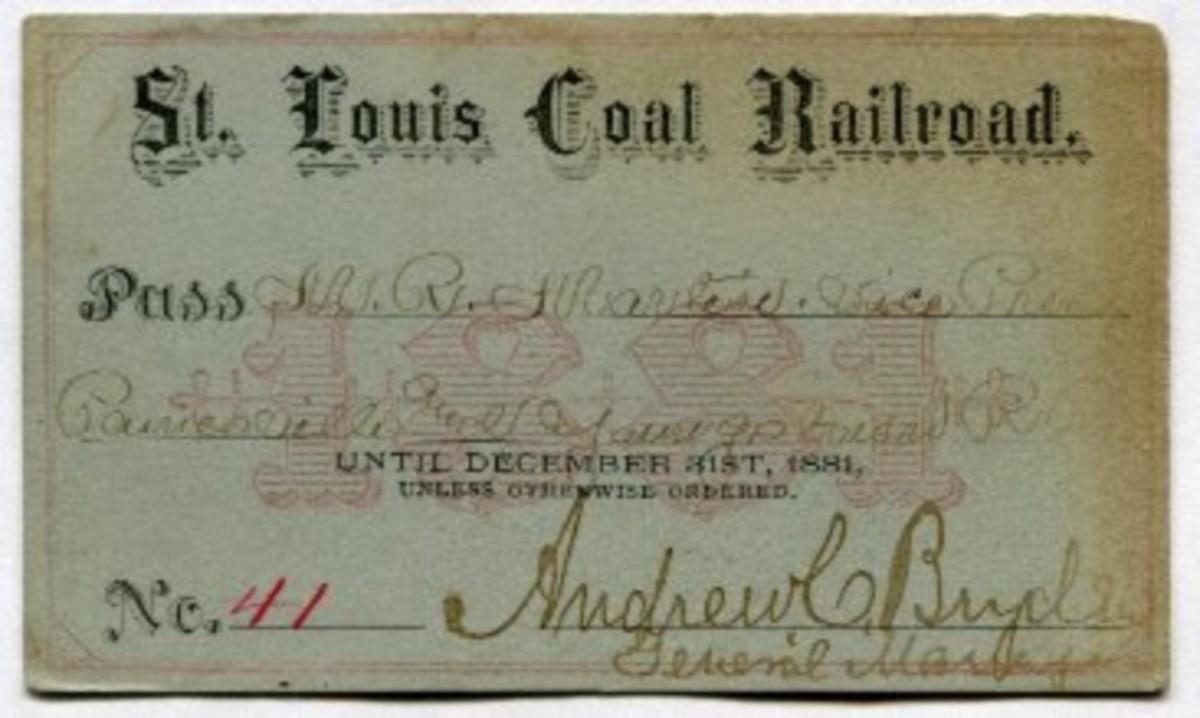 St. Louis Coal Railroad.
Pass W. R. Martin. Vice Pres
Painesville and Youngstown R
UNTIL DECEMBER 31ST, 1881,
UNLESS OTHERWISE ORDERED.
No. 41
Andrew C Bryd
General Manager
1881